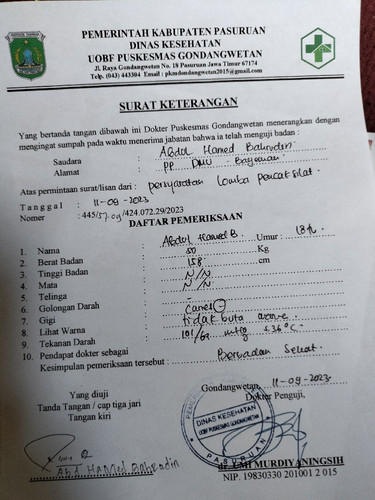 PEMERINTAH KABUPATEN PASURUAN
DINAS KESEHATAN
UOBF PUSKESMAS GONDANGWETAN
Jl. Raya Gondangwetan No. 18 Pasuruan Jawa Timur 67174
Telp. (043) 443304 Email : pkmdondangwetan2015@gmail.com
SURAT KETERANGAN
Yang bertanda tangan dibawah ini Dokter Puskesmas Gondangwetan menerangkan dengan
mengingat sumpah pada waktu menerima jabatan bawa ia telah menguji badan :
Saudara : Abdul Hamed Bahrudin
Alamat : PP. DMU - Bayeman
Atas permintaan surat/lisan dari : persyaratan lomba pencak silat.
Tanggal : 11-09-2023
Nomor : 445/57.09/424.072.29/2023
DAFTAR PEMERIKSAAN
1. Nama : Abdul Hamed B. Umur : 13 th
2. Berat Badan : 50 Kg
3. Tinggi Badan : 158 cm
4. Mata : N/N
5. Telinga : N/N
6. Golongan Darah : -
7. Gigi : caries
8. Lihat Warna : tidak buta warna
9. Tekanan Darah : 101/60 mmHg S.36°C
10. Pendapat dokter sebagai
Kesimpulan pemeriksaan tersebut : Berbadan Sehat.
Gondangwetan, 11-09-2023
Yang diuji
Dokter Penguji,
Tanda Tangan / cap tiga jari
Tangan kiri
DINAS KESEHATAN
UOBF PUSKESMAS GONDANGWETAN
PASURUAN
Abd Hamed Bahrudin
MURDIYANINGSIH
NIP. 19830330 201001 2 015